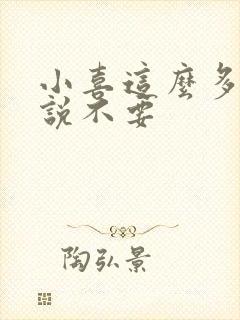 小喜這麼多
說不要
陶弘景